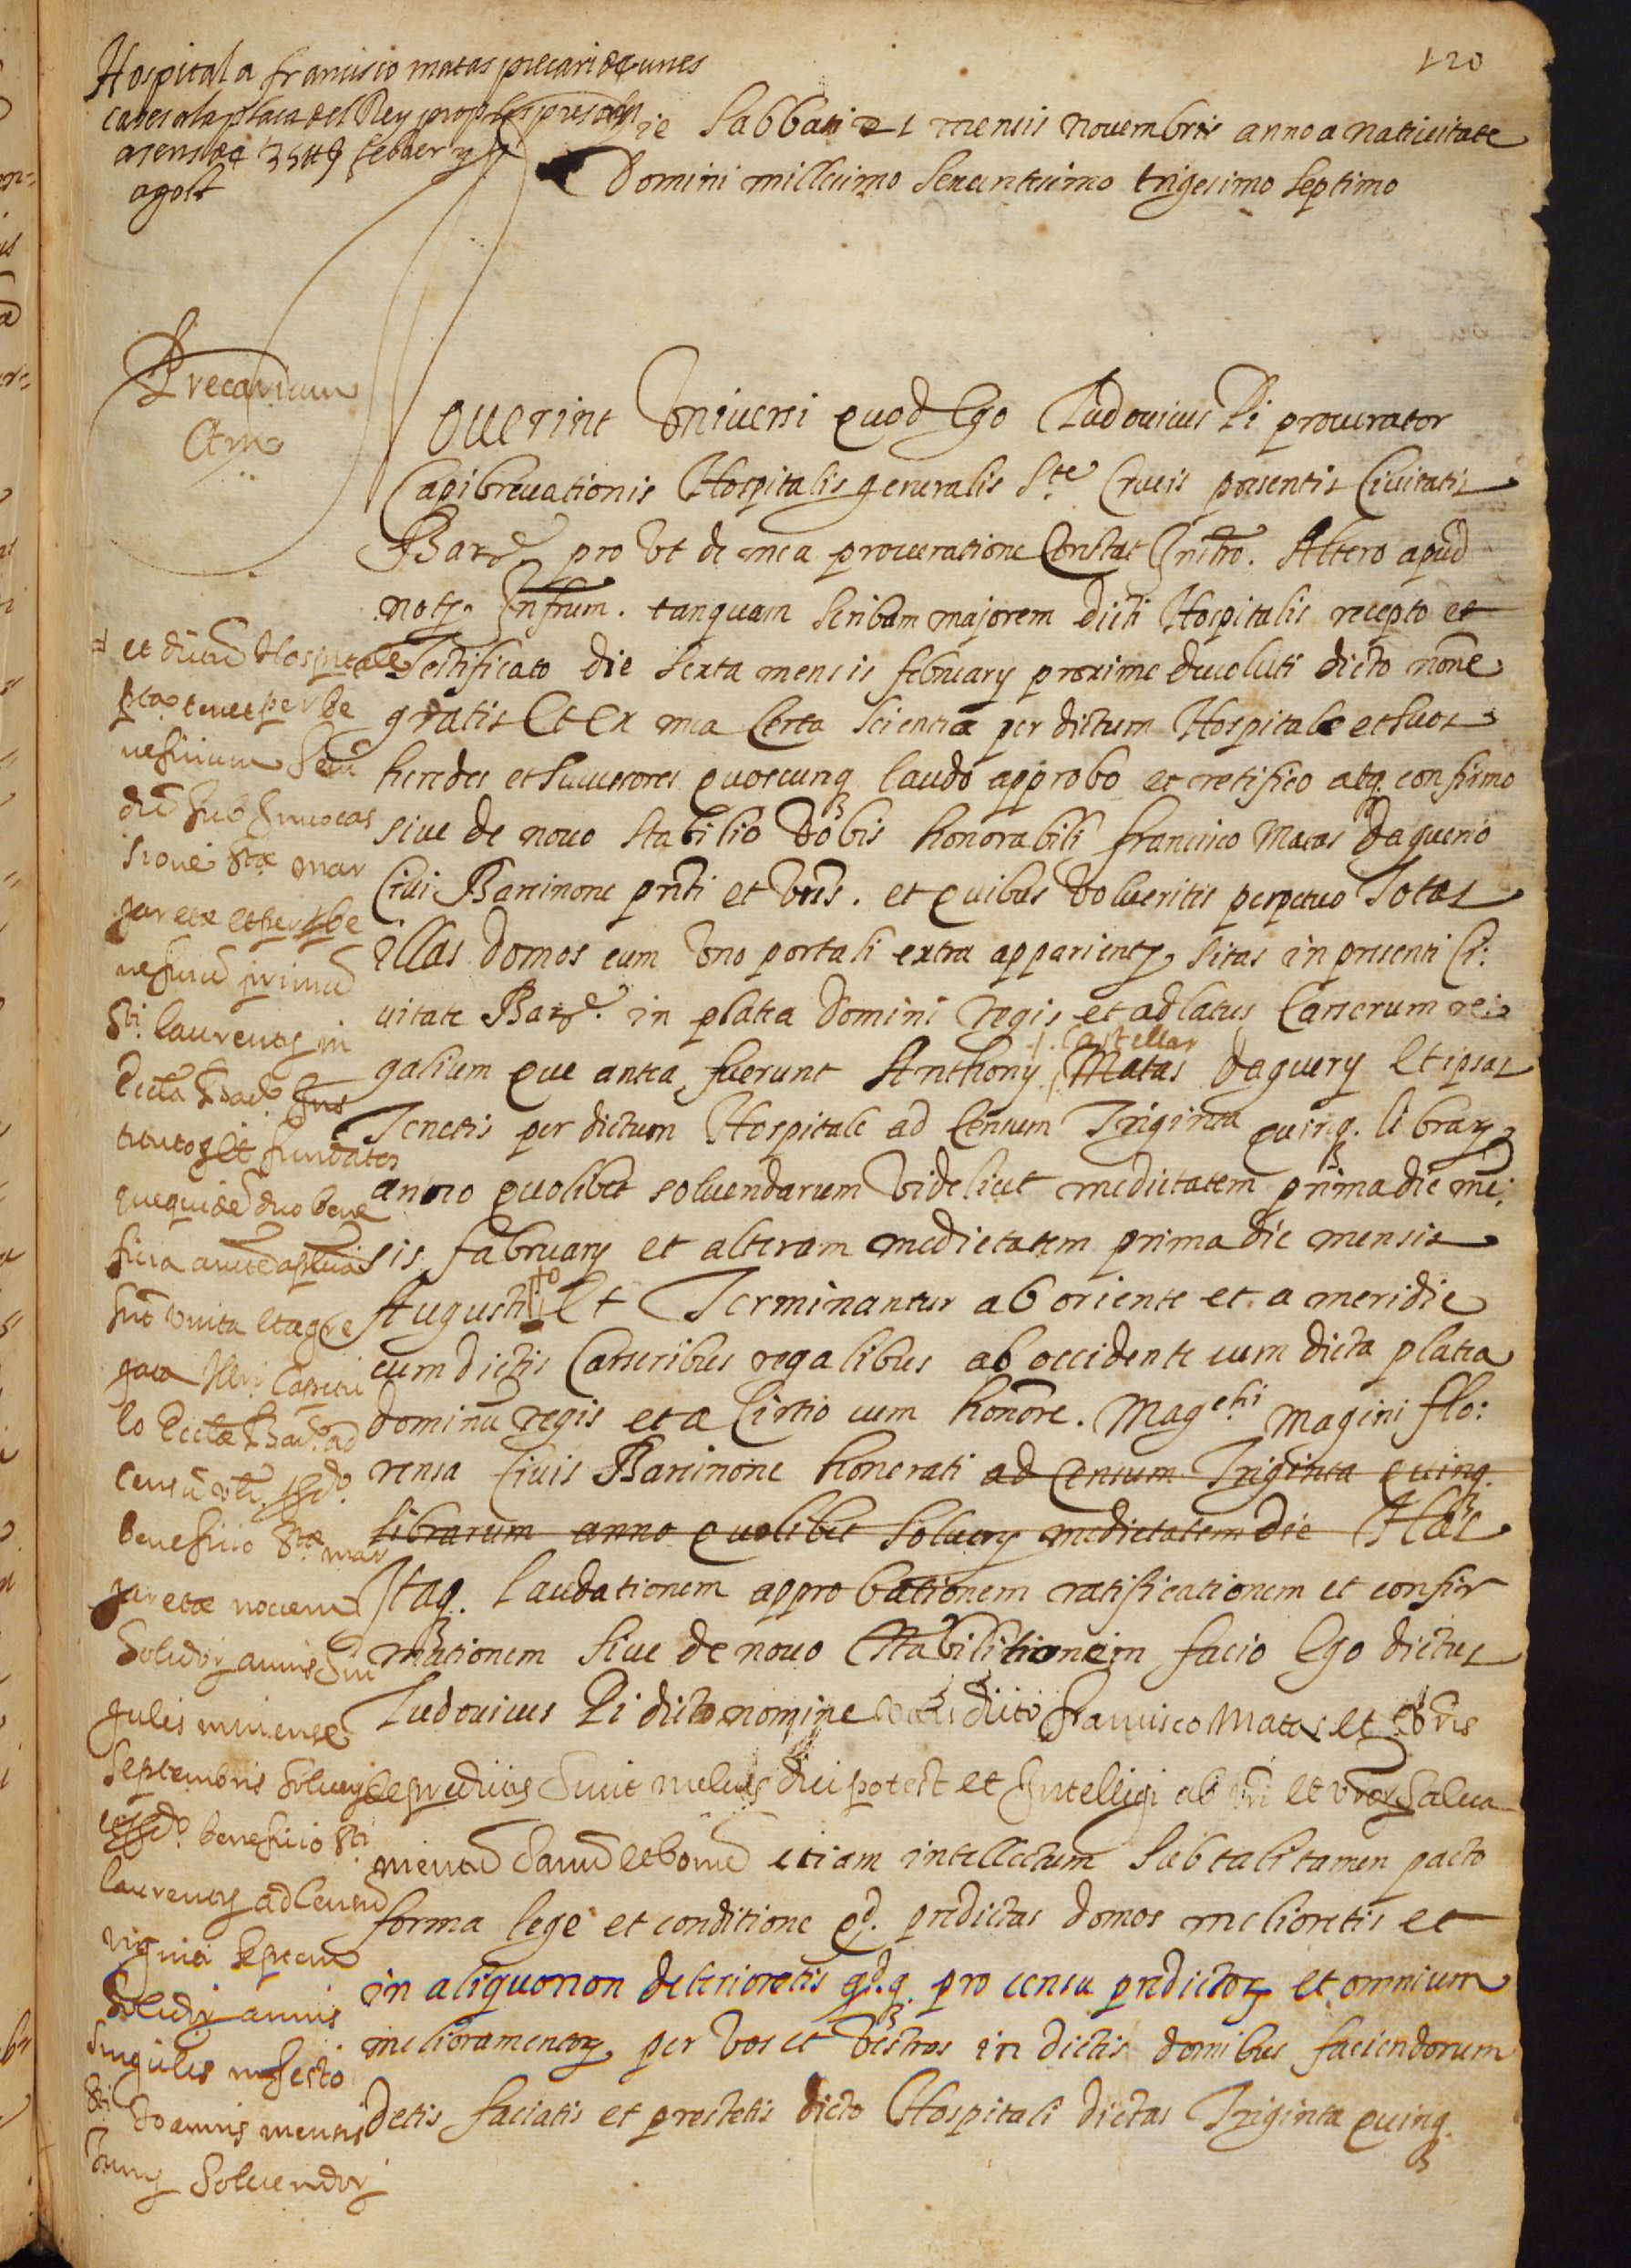 120
Hospital a francisco matas precari de unes
cases a la plaça del Rey prop les presons
a sens de 35 ₶ febrer y
agost
Die Sabbati 21 mensis novembris anno a nativitate
Domini millesimo sexcentesimo trigesimo septimo
Precarium
Noverint Vniversi quod Ego Ludovicus Pi procurator
Capibrevationis Hospitalis generalis Ste Crucis presentis Civitatis
Barne pro vt de mea procuratione Constat Instro. Altero apud
not. Infrum. tanquam Scribam majorem dicti Hospitalis recepto et
Testificato die sexta mensis february proxime devoluti dicto nōne
gratis Et Ex mea Certa Scientia per dictum Hospitale et suos
heredes et successores quoscunq laudo approbo et retifico atq. confirmo
sive de novo stabilio Vobis honorabili francisco Matas Daguerio
Civi Barcinone pnti et vris. et quibus Volueritis perpetuo Totas
illas Domos cum Vno portali extra apparient. sitas in presenti Ci:
vitate Barne. in platea Domini regis et ad latus Carcerum re:
galium que antea fuerunt Anthony Matas Daguery Et ipsas
Castellar
Tenetis per dictum Hospitale ad Censum Triginta quinq. librar
anno quolibet solvendarum Videlicet medietatem prima die me:
sis february et alteram medietatem prima die mensis
Augusti Et Terminantur ab oriente et a meridie
cum dictis Carceribus regalibus ab occidente cum dicta platea
domini regis et a Cirtio cum honore. Magchi Magini flo:
rensa Civis Barcinone honorati ad Censum Triginta quinq.
librarum anno quolibet Solven medietatem die Has
Itaq. laudationem approbationem ratificationem et confir
mationem sive de novo Stabilitionem facio Ego dictus
Ludovicus Pi dicto nomine dicto francisco Matas et vris
de predictis Sicut melius dici potest et Intelligi ad vri et vror Salva
mentū Sanū et bonū etiam intellectum Sub tali tamen pacto
forma lege et conditione qd. predictas domos melioretis et
in aliquo non deterioretis qd.q. pro censu predictor et omnium
melioramentor per Vos et Vestros in dictis domibus faciendorum
detis faciatis et prestetis dicto Hospitali dictas Triginta quinq.
et dictū Hospitale
pta tenet per be
neficium Secū
dū sub Invocas
sione Stæ mar
garetæ et per be
neficiū primū
Sti. laurenty in
Eccla Institutos et fundatos
quequidē duo bene
ficia
sūt vnita et agre
gata Capitu
lo Ecclæ ad
Censū
beneficio Stæ mar
garetæ novem
Solidor annis Sin
gulis in mense
Septembris Solven
beneficio Sti
laurenty ad Censū
viginti septem
Solidor annis
Singulis in festo
Sti Joannis mensis
Juny Solvendor